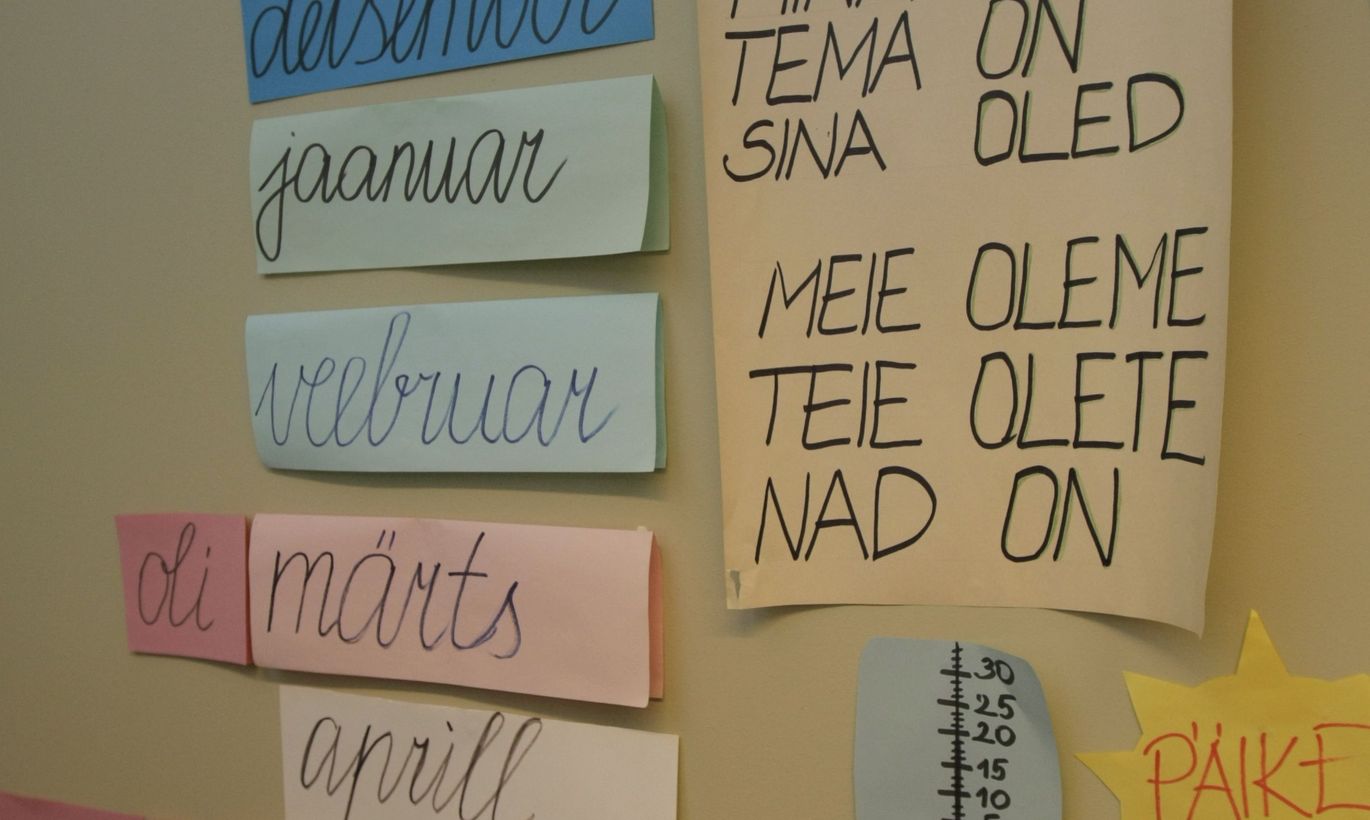 detsember
jaanuar
veebruar
oli märts
aprill
TEMA ON
SINA OLED
MEIE OLEME
TEIE OLETE
NAD ON
30
25
20
15
10
PÄIKE